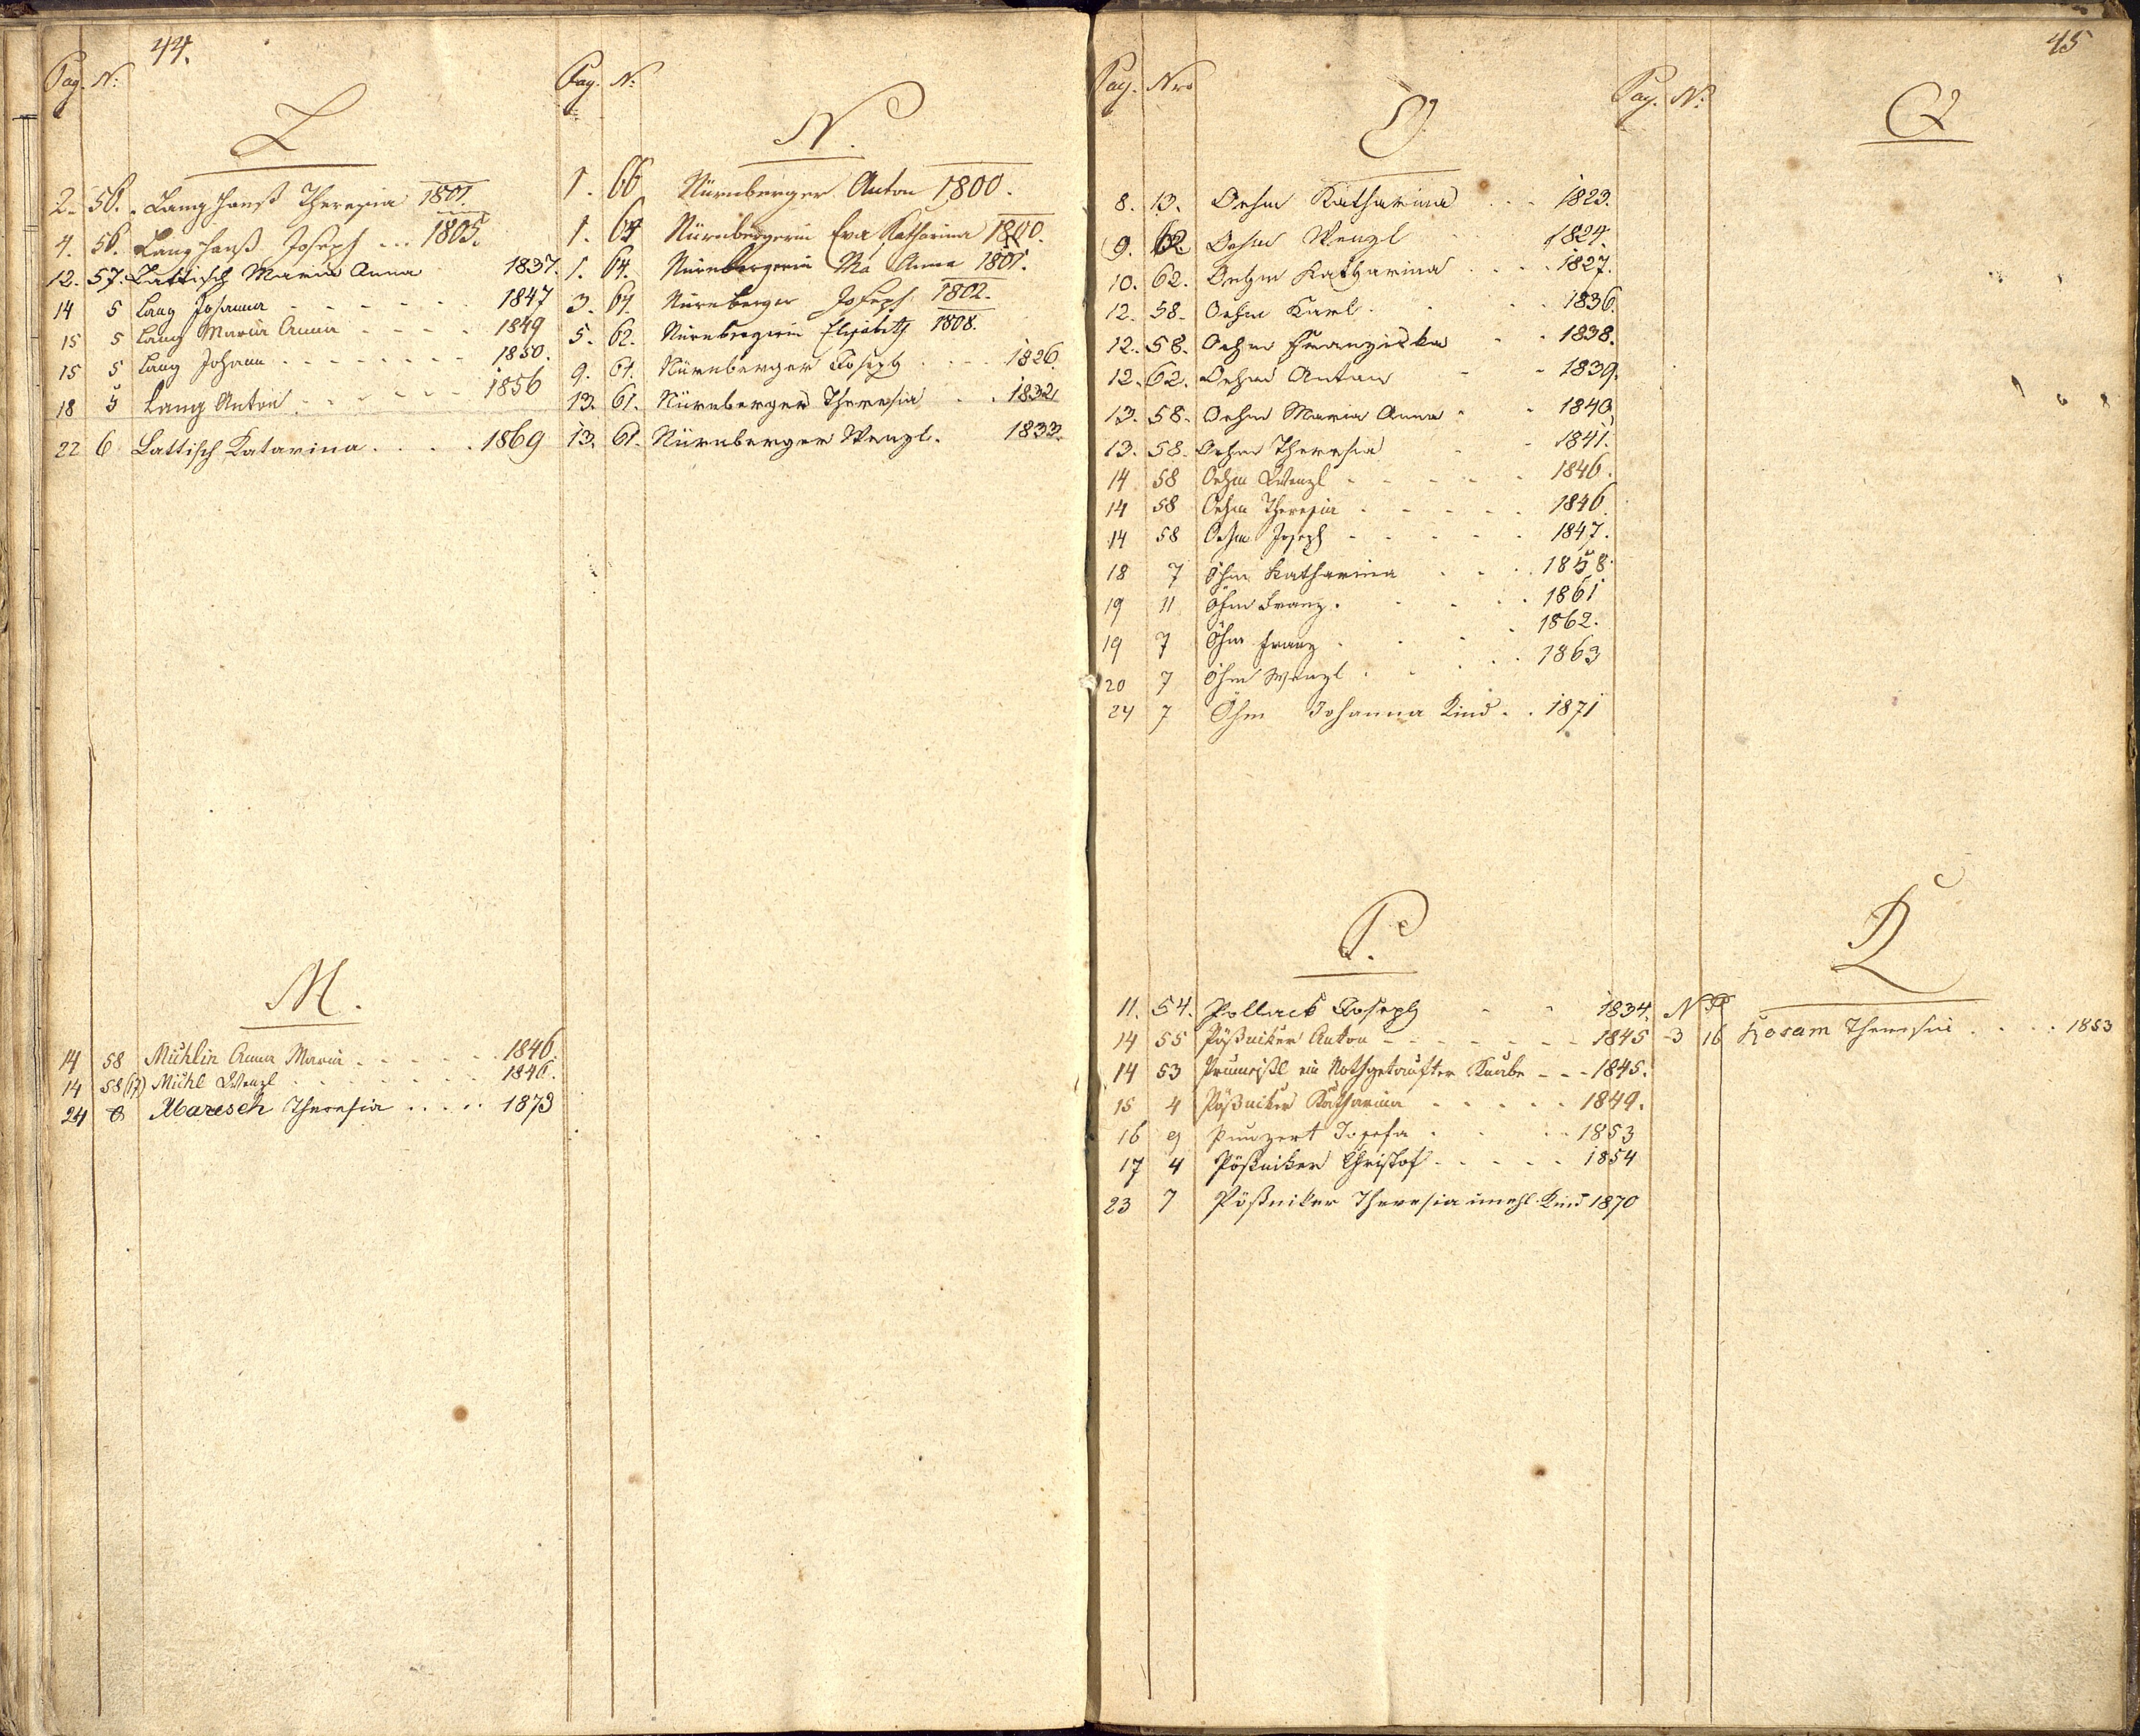 44.
Pag. N:
L
2. 56. Langhanß Theresia 1801.
4. 56. Langhanß Joseph ... 1805.
12. 57. Lattisch Maria Anna 1837.
14 5 Lang Johanna - - - - - 1847
15 5 Lang Maria Anna - - - - 1849
15 5 Lang Johann - - - - - - - 1850.
18 5 Lang Anton - - - - - - 1856
22 6 Lattisch Katarina . . . . 1869
M.
14 58 Mühlin Anna Maria - - - - - 1846.
14 58 (17) Mühl Wenzl - - - - - - - 1846.
24 8 Maresch Theresia . . . . . 1873
Pag. N:
N.
1. 66 Nürnberger Anton 1800.
1. 64 Nürnbergerin Eva Katharina 1800.
1. 64. Nürnbergerin Ma Anna 1801.
3. 64. Nürnberger Joseph 1802.
5. 62. Nürnbergerin Elisabeth 1808.
9. 61. Nürnberger Joseph . - - - 1826.
13. 61. Nürnberger Theresia - . 1832.
13. 61. Nürnberger Wenzl. 1833.
45
Pag. Nro
O.
8. 13. Oehm Katharina . - - 1823.
9. 62 Oehm Wenzl 1824.
10. 62. Oehm Katharina . . . . 1827.
12. 58. Oehm Karl . . - . 1836.
12. 58. Oehm Franziska . . 1838.
12. 62. Oehm Anton - - 1839.
13. 58. Oehm Maria Anna - . 1840.
13. 58. Oehm Theresia - - 1841.
14 58 Oehm Wenzl - - - - - 1846.
14 58 Oehm Theresia . - - - . 1846.
14 58 Oehm Joseph - - - - . 1847.
18 7 Öhm Katharina . - . 1858.
19 11 Öhm Franz . . . - . 1861
19 7 Öhm Franz . . - . 1862.
20 7 Öhm Wenzl . . . . . 1863
24 7 Öhm Johanna Kind . . 1871
P.
11. 54. Pollack Joseph - - 1834.
14 55 Pößniker Anton - - - - - - - 1845
14 53 ein Nothgetaufter Knabe - - - 1845.
15 4 Pößniker Katharina - - - - - 1849.
16 9 Punzert Josefa . . . . 1853
17 4 Pößniker Christof . - . . . 1854
23 7 Pößniker Theresia unehl. Kind 1870
Pag. N:
Q
R
N P
3 16 Rosam Theresia . . . . 1853